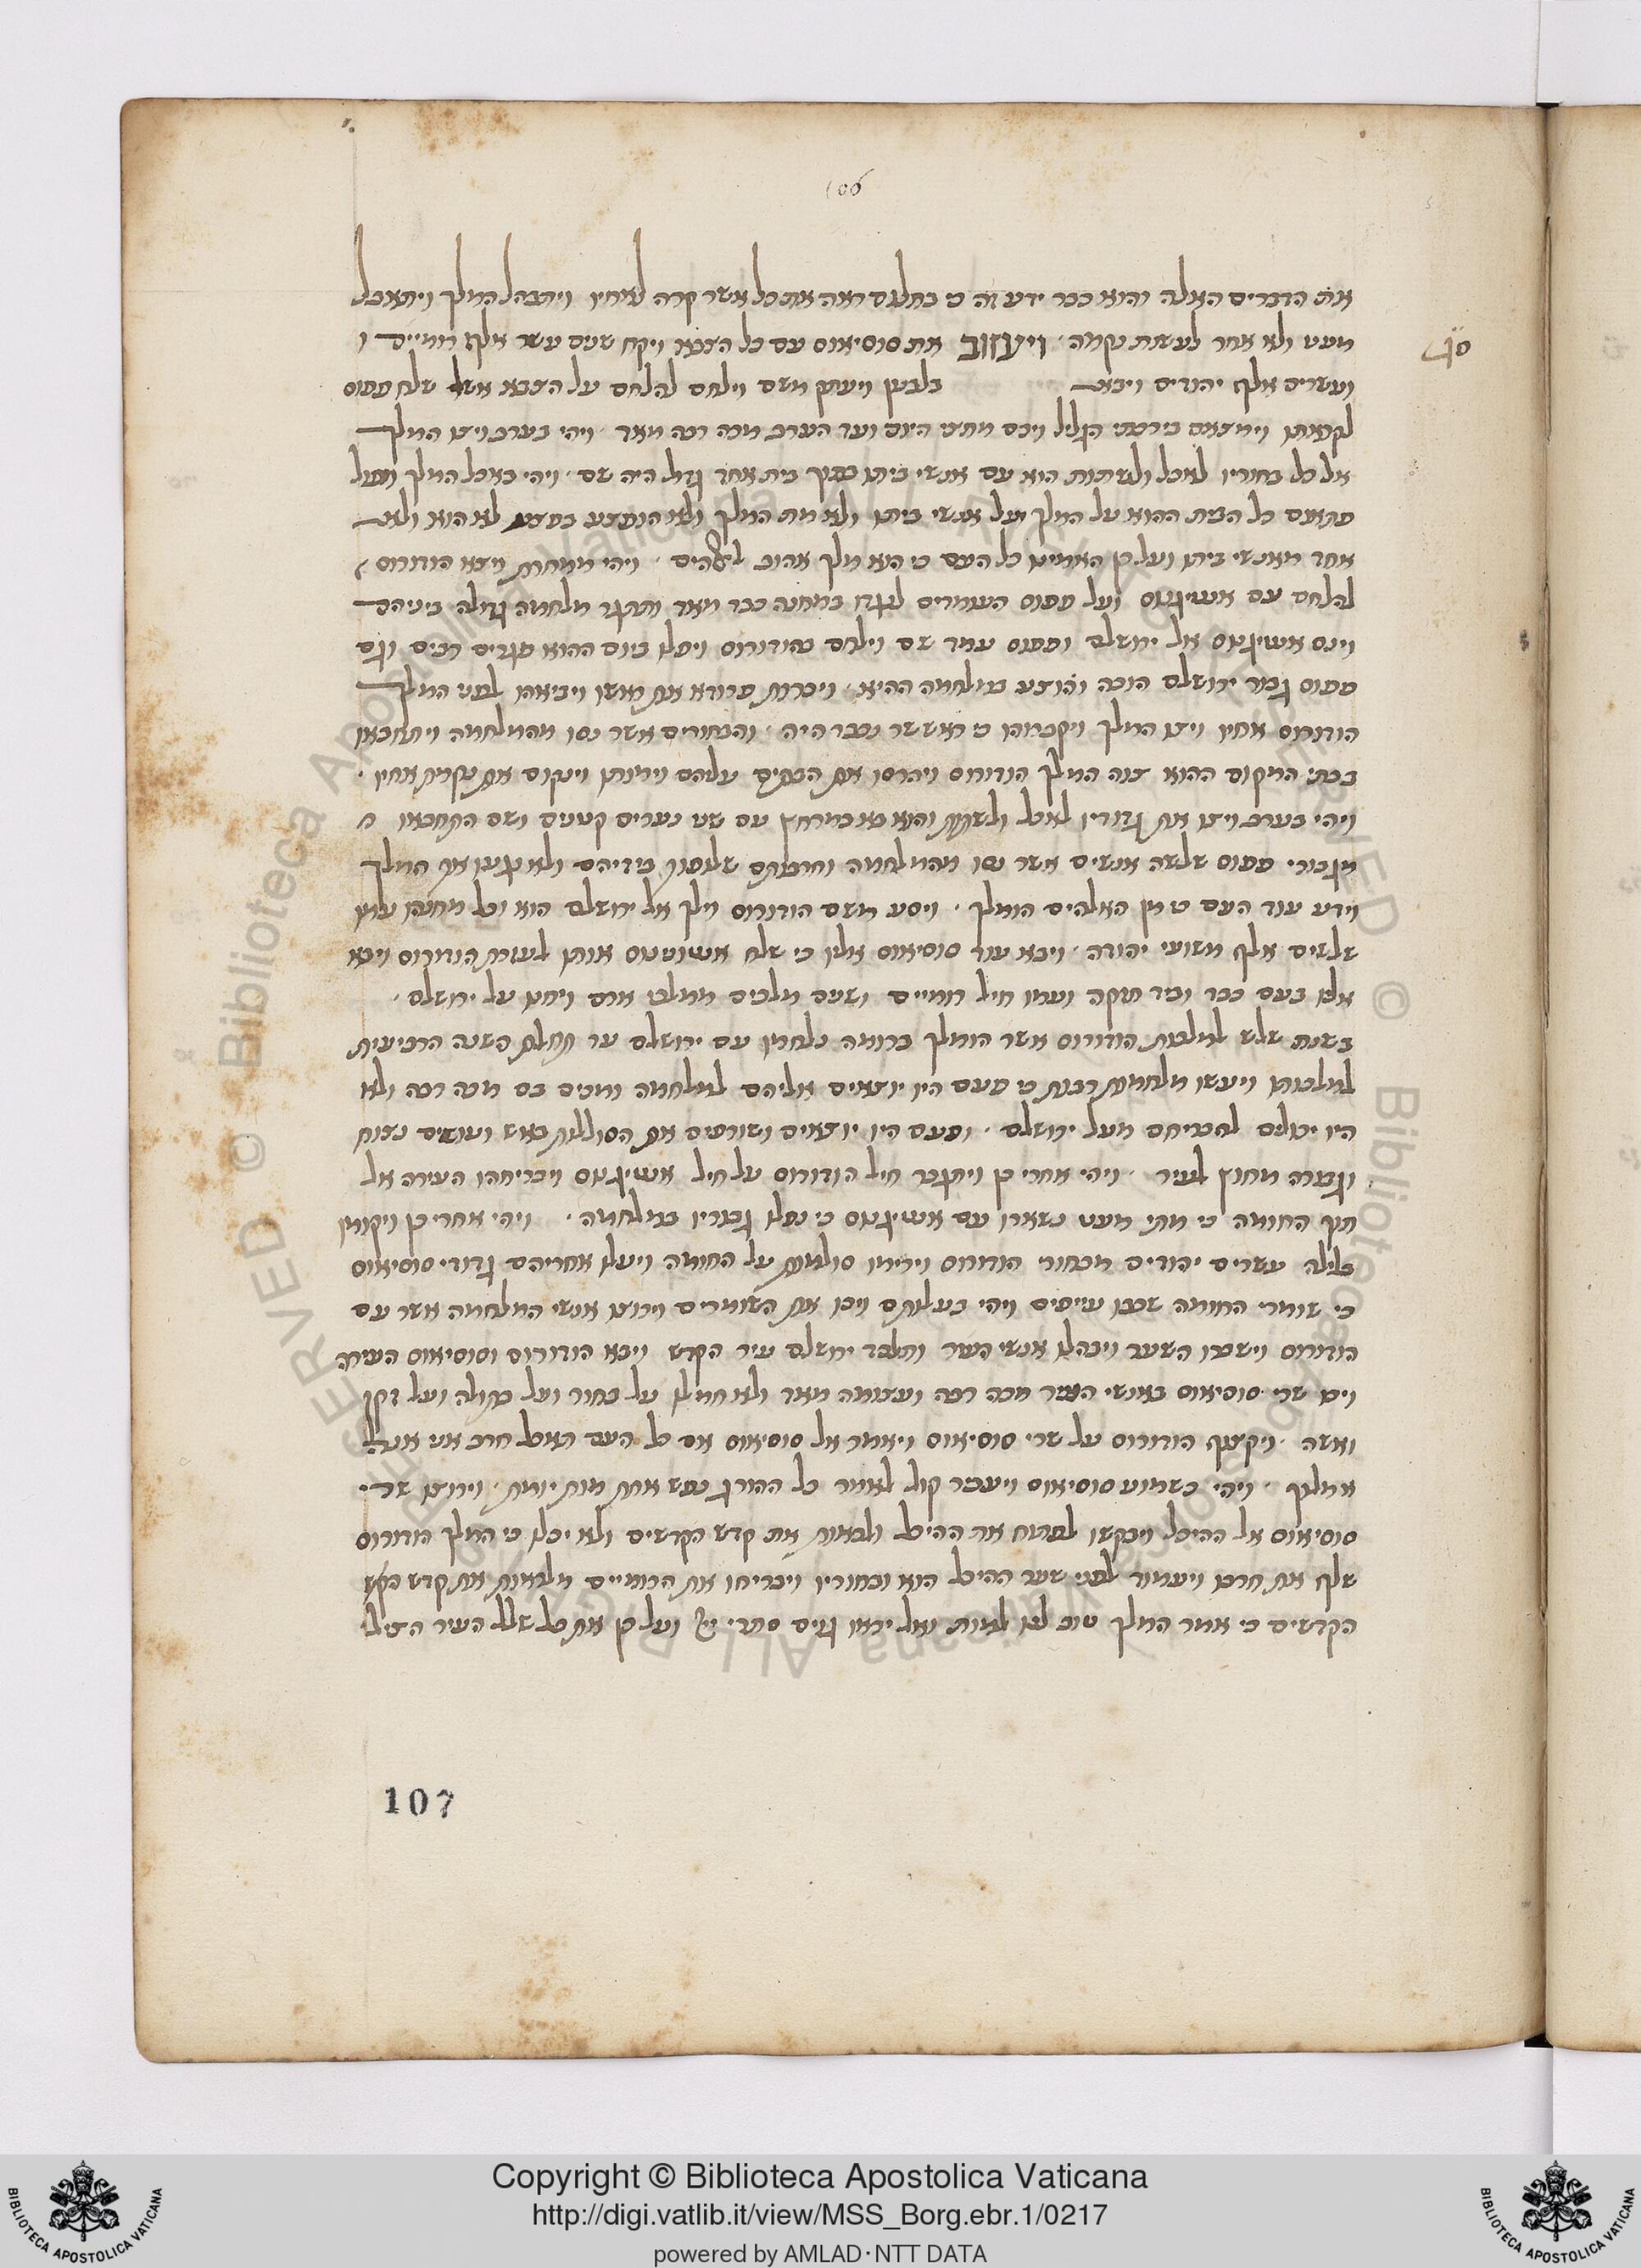 106
את הדברים האלה והוא כבר ידע זה כי בחלום ראה את כל אשר קרה לאחיו ויתבהל המלך ויתאבל
מעט ולא אחר לעשות נקמה. ויעזוב את סוסיאוס עם כל הצבא ויקח שנים עשר אלף רומיים ו
ועשרים אלף יהודים ויבא בלבנון ויעתק משם וילחם להלחם על הצבא אשר שלח פפוס
לקראתו וימצאם בירכתי הגליל ויכם מחצי היום ועד הערב מכה רבה מאד. ויהי בערב ויצו המלך
אל כל בחוריו לאכל ולשתות הוא עם אנשי ביתו בתוך בית אחד גדול היה שם. ויהי באכל המלך ויפול
פתאם כל הבית ההוא על המלך ועל אנשי ביתו ולא מת המלך ולא הופצע בפצע לא הוא ולא
אחד מאנשי ביתו ועל כן האמינו כל העם כי הוא מלך אהוב לאלהים. ויהי ממחרת ויצא הורודוס
להלחם עם אנטיגנוס ועל פפוס העומדים לנגדו במחנה כבד מאד ותהי מלחמה גדולה ביניהם
וינס אנטיגנוס אל ירושלם ופפוס עמד שם וילחם בהורודוס ויפלו ביום ההוא פגרים רבים וגם
פפוס גבור ירושלם הוכה והופצע במלחמה ההיא. ויכרות פרורא את ראשו ויביאהו לפני המלך
הורודוס אחיו ויצו המלך ויקברוהו כי ראש שר נכבד היה. והבחורים אשר נסו מהמלחמה ויתחבאו
בבתי המקום ההוא צוה המלך הורודוס ויהרסו את הבתים עליהם וימותו וינקום את נקמת אחיו.
ויהי בערב ויצו את גדודיו לאכל ולשתות והוא בא במרחץ עם שני נערים קטנים ושם התחבאו
מגבורי פפוס שלשה אנשים אשר נסו מהמלחמה וחרבותם שלופות בידיהם ולא נגעו את המלך
וידע עוד העם כי מן האלהים הומלך. ויסע משם הורודוס וילך אל ירושלם הוא וכל מחנהו עמו
שלשים אלף משועי יהודה. ויבא עוד סוסיאוס אליו כי שלח אנטוניאוס אותו לעזרת הורודוס ויבא
אליו בעם כבד וביד חזקה ועמו חיל רומיים ושנים מלכים ממלכי ארם ויחנו על ירושלם.
בשנת שלש למלכות הורודוס אשר הומלך ברומה נלחמו עם ירושלם עד תחלת השנה הרביעית
למלכותו ויעשו מלחמות רבות כי פעם היו יוצאים אליהם למלחמה ומכים בם מכה רבה ולא
היו יכולים להבריחם מעל ירושלם. ופעם היו יוצאים ושורפים את הסוללות באש ועושים נצוח
וגבורה מחוץ לעיר. ויהי אחרי כן ויתגבר חיל הורודוס על חיל אנטיגנוס ויבריחהו העירה אל
תוך החומה כי מתי מעט נשארו עם אנטיגנוס כי נפלו גבוריו במלחמה. ויהי אחרי כן ויקומו
בלילה עשרים יהודים מבחורי הורודוס וירימו סולמות על החומה ויעלו אחריהם גדודי סוסיאוס
כי שומרי החומה שכבו עייפים ויהי בעלותם ויכו את השומרים וירוצו אנשי המלחמה אשר עם
הורודוס וישברו השער ויבהלו אנשי העיר ותלכד ירושלם עיר הקדש ויבא הורודוס וסוסיאוס העירה
ויכו שרי סוסיאוס באנשי העיר מכה רבה ועצומה מאד ולא חמלו על בחור ועל בתולה ועל זקן
ואשה. ויקצוף הורודוס על שרי סוסיאוס ויאמר אל סוסיאוס אם כל העם תאכל חרב אני אנה
אמלוך. ויהי כשמוע סוסיאוס ויעבר קול לאמר כל ההורג נפש אחת מות יומת. וירוצו שרי
סוסיאוס אל ההיכל ויבקשו לפתוח את ההיכל ולראות את קדש הקדשים ולא יכלו כי המלך הורודוס
שלף את חרבו ויעמוד לפני שער ההיכל הוא ובחוריו ויבריחו את הרומיים מלראות את קדש
הקדשים כי אמר המלך טוב לנו למות ואל יראו גוים סתרי ועל כן את כל שלל העיר הציל
107
Copyright © Biblioteca Apostolica Vaticana
http://digi.vatlib.it/view/MSS_Borg.ebr.1/0217
powered by AMLAD·NTT DATA